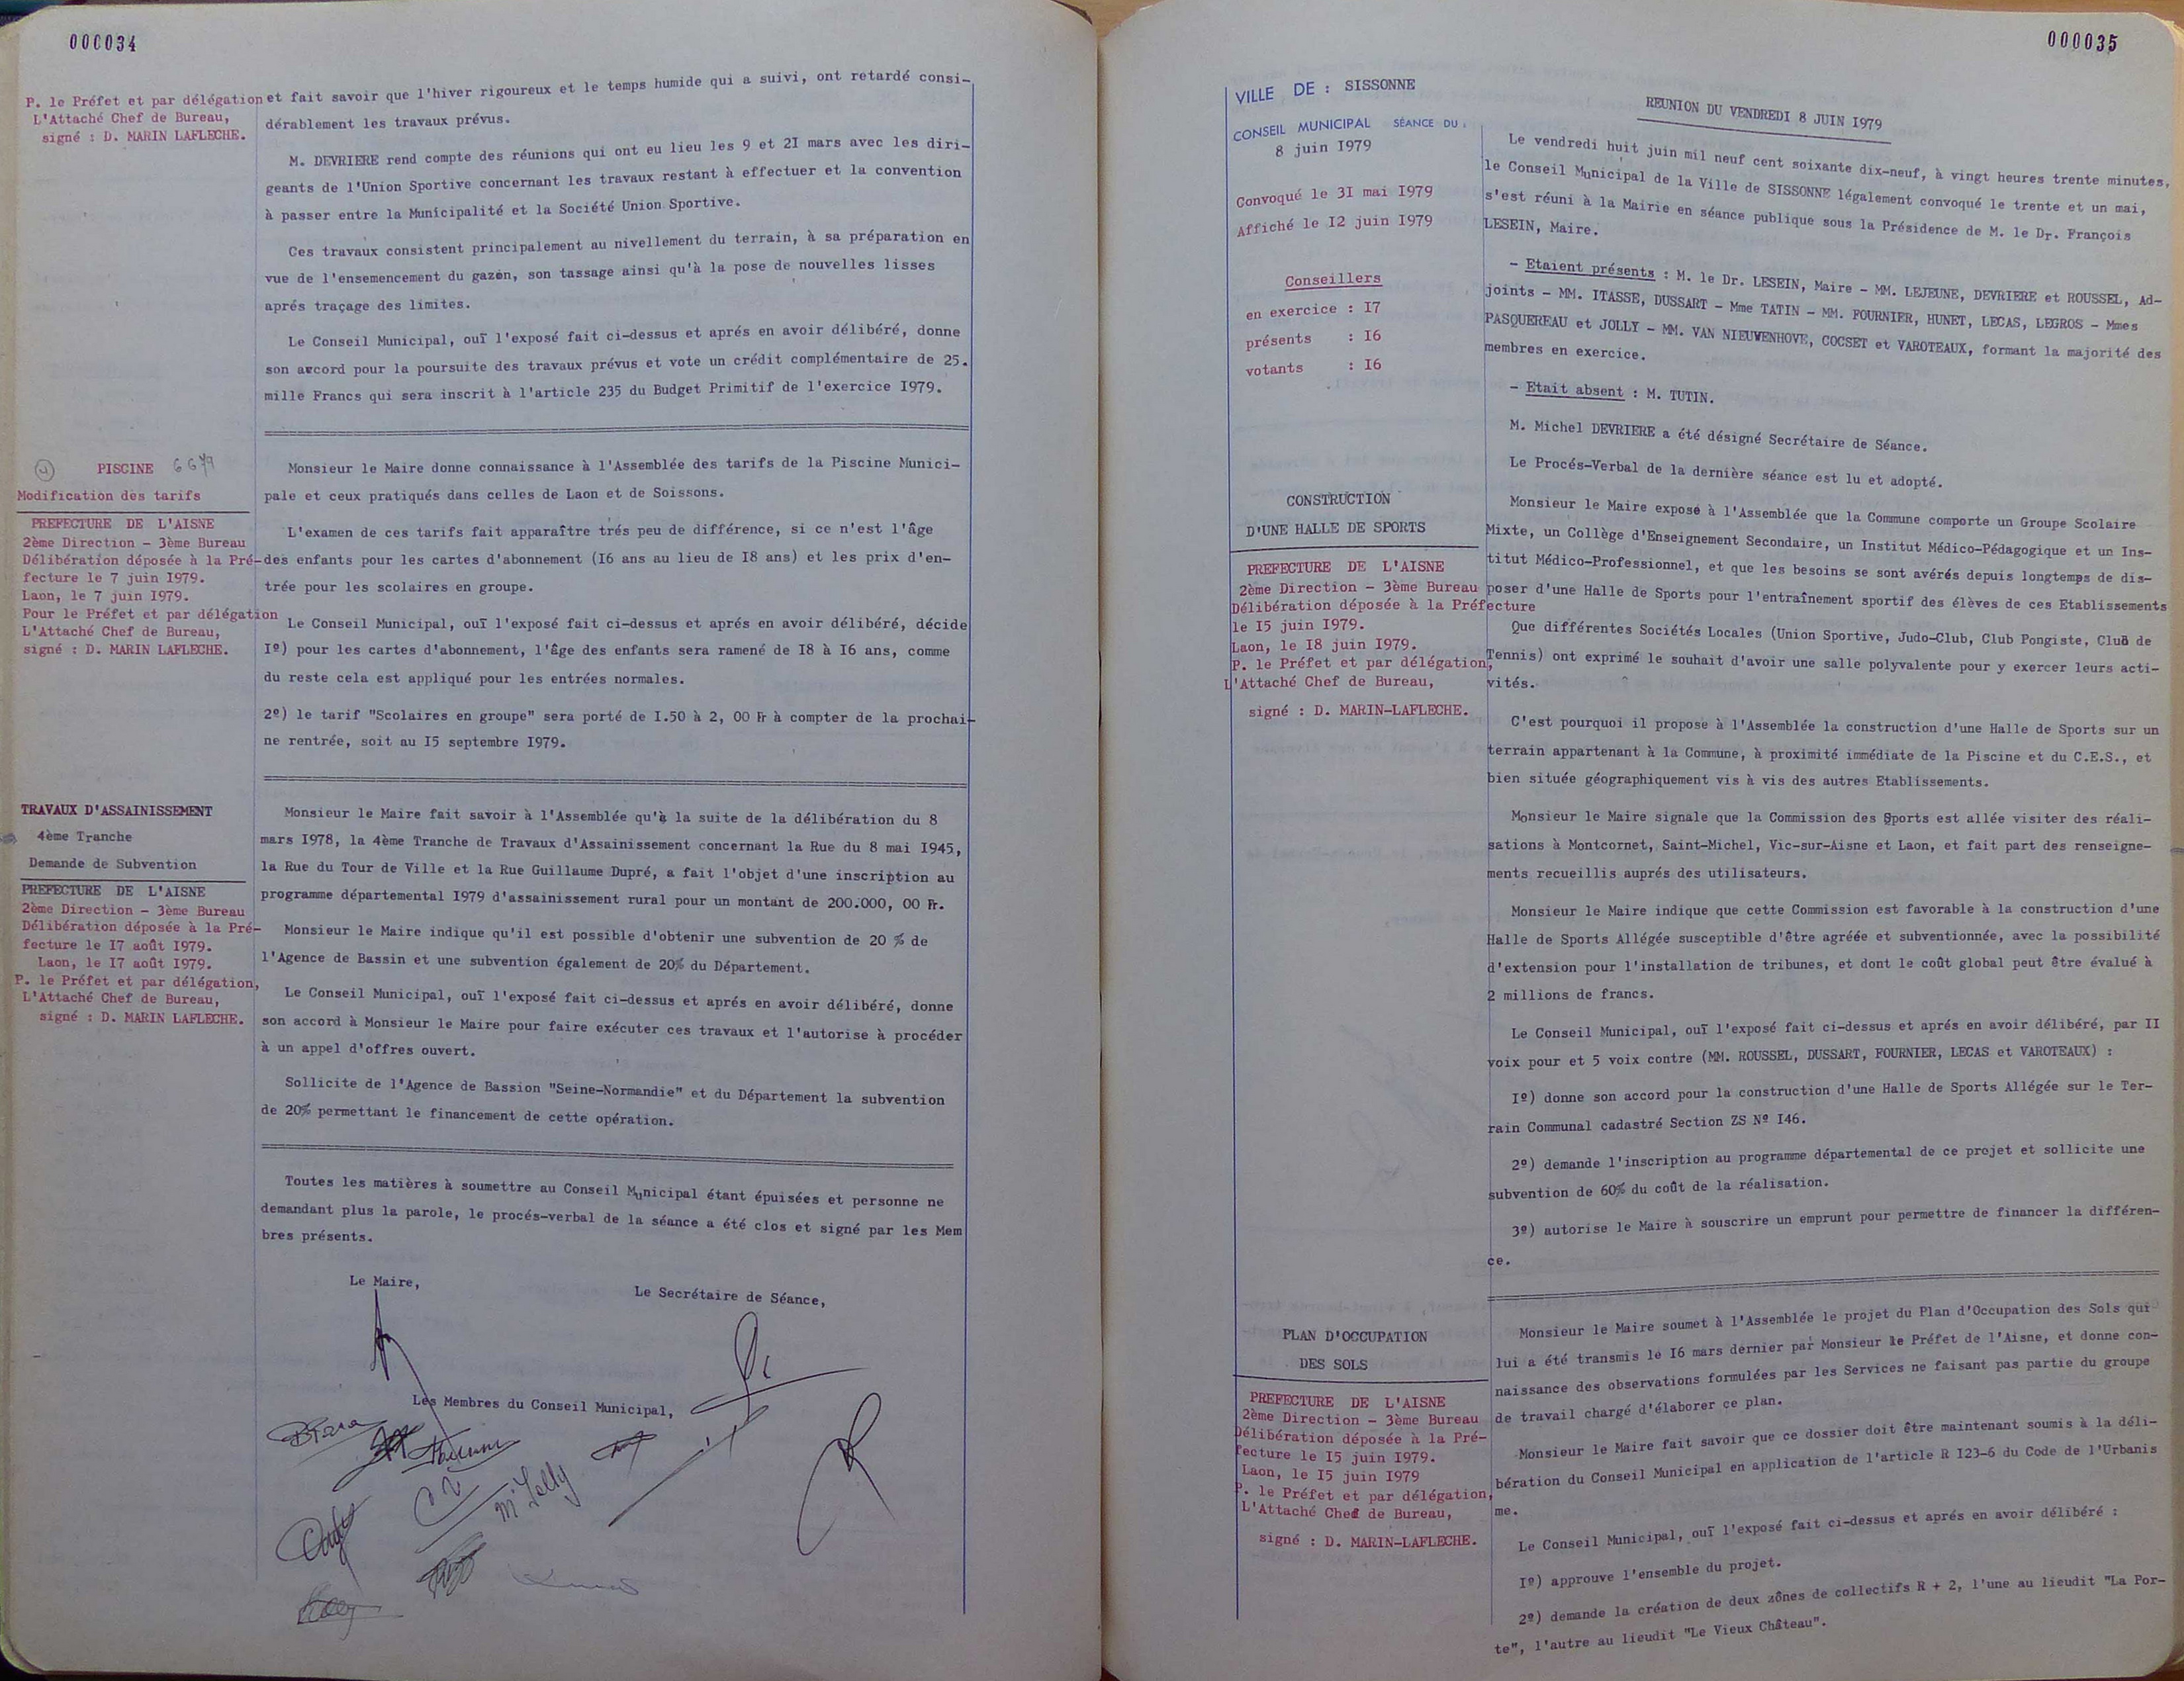 000034
P. le Préfet et par délégation
L'Attaché Chef de Bureau,
signé : D. MARIN LAFLECHE.
et fait savoir que l'hiver rigoureux et le temps humide qui a suivi, ont retardé consi-
dérablement les travaux prévus.
M. DEVRIERE rend compte des réunions qui ont eu lieu les 9 et 2I mars avec les diri-
geants de l'Union Sportive concernant les travaux restant à effectuer et la convention
à passer entre la Municipalité et la Société Union Sportive.
Ces travaux consistent principalement au nivellement du terrain, à sa préparation en
vue de l'ensemencement du gazon, son tassage ainsi qu'à la pose de nouvelles lisses
aprés traçage des limites.
Le Conseil Municipal, ouï l'exposé fait ci-dessus et aprés en avoir délibéré, donne
son accord pour la poursuite des travaux prévus et vote un crédit complémentaire de 25.
mille Francs qui sera inscrit à l'article 235 du Budget Primitif de l'exercice I979.
4 PISCINE 6 6 79
Modification des tarifs
PREFECTURE DE L'AISNE
2ème Direction - 3ème Bureau
Délibération déposée à la Pré-
fecture le 7 juin I979.
Laon, le 7 juin I979.
Pour le Préfet et par délégation
L'Attaché Chef de Bureau,
signé : D. MARIN LAFLECHE.
Monsieur le Maire donne connaissance à l'Assemblée des tarifs de la Piscine Munici-
pale et ceux pratiqués dans celles de Laon et de Soissons.
L'examen de ces tarifs fait apparaître trés peu de différence, si ce n'est l'âge
des enfants pour les cartes d'abonnement (I6 ans au lieu de I8 ans) et les prix d'en-
trée pour les scolaires en groupe.
Le Conseil Municipal, ouï l'exposé fait ci-dessus et aprés en avoir délibéré, décide
Iº) pour les cartes d'abonnement, l'âge des enfants sera ramené de I8 à I6 ans, comme
du reste cela est appliqué pour les entrées normales.
2º) le tarif "Scolaires en groupe" sera porté de I.50 à 2, 00 Fr à compter de la prochai-
ne rentrée, soit au I5 septembre I979.
TRAVAUX D'ASSAINISSEMENT
4ème Tranche
Demande de Subvention
PREFECTURE DE L'AISNE
2ème Direction - 3ème Bureau
Délibération déposée à la Pré-
fecture le I7 août I979.
Laon, le I7 août I979.
P. le Préfet et par délégation,
L'Attaché Chef de Bureau,
signé : D. MARIN LAFLECHE.
Monsieur le Maire fait savoir à l'Assemblée qu'à la suite de la délibération du 8
mars I978, la 4ème Tranche de Travaux d'Assainissement concernant la Rue du 8 mai I945,
la Rue du Tour de Ville et la Rue Guillaume Dupré, a fait l'objet d'une inscription au
programme départemental I979 d'assainissement rural pour un montant de 200.000, 00 Fr.
Monsieur le Maire indique qu'il est possible d'obtenir une subvention de 20 % de
l'Agence de Bassin et une subvention également de 20% du Département.
Le Conseil Municipal, ouï l'exposé fait ci-dessus et aprés en avoir délibéré, donne
son accord à Monsieur le Maire pour faire exécuter ces travaux et l'autorise à procéder
à un appel d'offres ouvert.
Sollicite de l'Agence de Bassion "Seine-Normandie" et du Département la subvention
de 20% permettant le financement de cette opération.
Toutes les matières à soumettre au Conseil Municipal étant épuisées et personne ne
demandant plus la parole, le procés-verbal de la séance a été clos et signé par les Mem
bres présents.
Le Maire,
Le Secrétaire de Séance,
Les Membres du Conseil Municipal,
M Jolly
000035
VILLE DE : SISSONNE
CONSEIL MUNICIPAL SÉANCE DU :
8 juin I979
Convoqué le 3I mai I979
Affiché le I2 juin I979
Conseillers
en exercice : I7
présents : I6
votants : I6
REUNION DU VENDREDI 8 JUIN I979
Le vendredi huit juin mil neuf cent soixante dix-neuf, à vingt heures trente minutes,
le Conseil Municipal de la Ville de SISSONNE légalement convoqué le trente et un mai,
s'est réuni à la Mairie en séance publique sous la Présidence de M. le Dr. François
LESEIN, Maire.
- Etaient présents : M. le Dr. LESEIN, Maire - MM. LEJEUNE, DEVRIERE et ROUSSEL, Ad-
joints - MM. ITASSE, DUSSART - Mme TATIN - MM. FOURNIER, HUNET, LECAS, LEGROS - Mmes
PASQUEREAU et JOLLY - MM. VAN NIEUWENHOVE, COCSET et VAROTEAUX, formant la majorité des
membres en exercice.
- Etait absent : M. TUTIN.
M. Michel DEVRIERE a été désigné Secrétaire de Séance.
Le Procés-Verbal de la dernière séance est lu et adopté.
CONSTRUCTION
D'UNE HALLE DE SPORTS
PREFECTURE DE L'AISNE
2ème Direction - 3ème Bureau
Délibération déposée à la Préfecture
le I5 juin I979.
Laon, le I8 juin I979.
P. le Préfet et par délégation,
L'Attaché Chef de Bureau,
signé : D. MARIN-LAFLECHE.
Monsieur le Maire expose à l'Assemblée que la Commune comporte un Groupe Scolaire
Mixte, un Collège d'Enseignement Secondaire, un Institut Médico-Pédagogique et un Ins-
titut Médico-Professionnel, et que les besoins se sont avérés depuis longtemps de dis-
poser d'une Halle de Sports pour l'entraînement sportif des élèves de ces Etablissements
Que différentes Sociétés Locales (Union Sportive, Judo-Club, Club Pongiste, Club de
Tennis) ont exprimé le souhait d'avoir une salle polyvalente pour y exercer leurs acti-
vités.
C'est pourquoi il propose à l'Assemblée la construction d'une Halle de Sports sur un
terrain appartenant à la Commune, à proximité immédiate de la Piscine et du C.E.S., et
bien située géographiquement vis à vis des autres Etablissements.
Monsieur le Maire signale que la Commission des Sports est allée visiter des réali-
sations à Montcornet, Saint-Michel, Vic-sur-Aisne et Laon, et fait part des renseigne-
ments recueillis auprés des utilisateurs.
Monsieur le Maire indique que cette Commission est favorable à la construction d'une
Halle de Sports Allégée susceptible d'être agréée et subventionnée, avec la possibilité
d'extension pour l'installation de tribunes, et dont le coût global peut être évalué à
2 millions de francs.
Le Conseil Municipal, ouï l'exposé fait ci-dessus et aprés en avoir délibéré, par II
voix pour et 5 voix contre (MM. ROUSSEL, DUSSART, FOURNIER, LECAS et VAROTEAUX) :
Iº) donne son accord pour la construction d'une Halle de Sports Allégée sur le Ter-
rain Communal cadastré Section ZS Nº I46.
2º) demande l'inscription au programme départemental de ce projet et sollicite une
subvention de 60% du coût de la réalisation.
3º) autorise le Maire à souscrire un emprunt pour permettre de financer la différen-
ce.
PLAN D'OCCUPATION
DES SOLS
PREFECTURE DE L'AISNE
2ème Direction - 3ème Bureau
Délibération déposée à la Pré-
fecture le I5 juin I979.
Laon, le I5 juin I979
P. le Préfet et par délégation,
L'Attaché Chef de Bureau,
signé : D. MARIN-LAFLECHE.
Monsieur le Maire soumet à l'Assemblée le projet du Plan d'Occupation des Sols qui
lui a été transmis le I6 mars dernier par Monsieur le Préfet de l'Aisne, et donne con-
naissance des observations formulées par les Services ne faisant pas partie du groupe
de travail chargé d'élaborer ce plan.
Monsieur le Maire fait savoir que ce dossier doit être maintenant soumis à la déli-
bération du Conseil Municipal en application de l'article R I23-6 du Code de l'Urbanis
me.
Le Conseil Municipal, ouï l'exposé fait ci-dessus et aprés en avoir délibéré :
Iº) approuve l'ensemble du projet.
2º) demande la création de deux zônes de collectifs R + 2, l'une au lieudit "La Por-
te", l'autre au lieudit "Le Vieux Château".